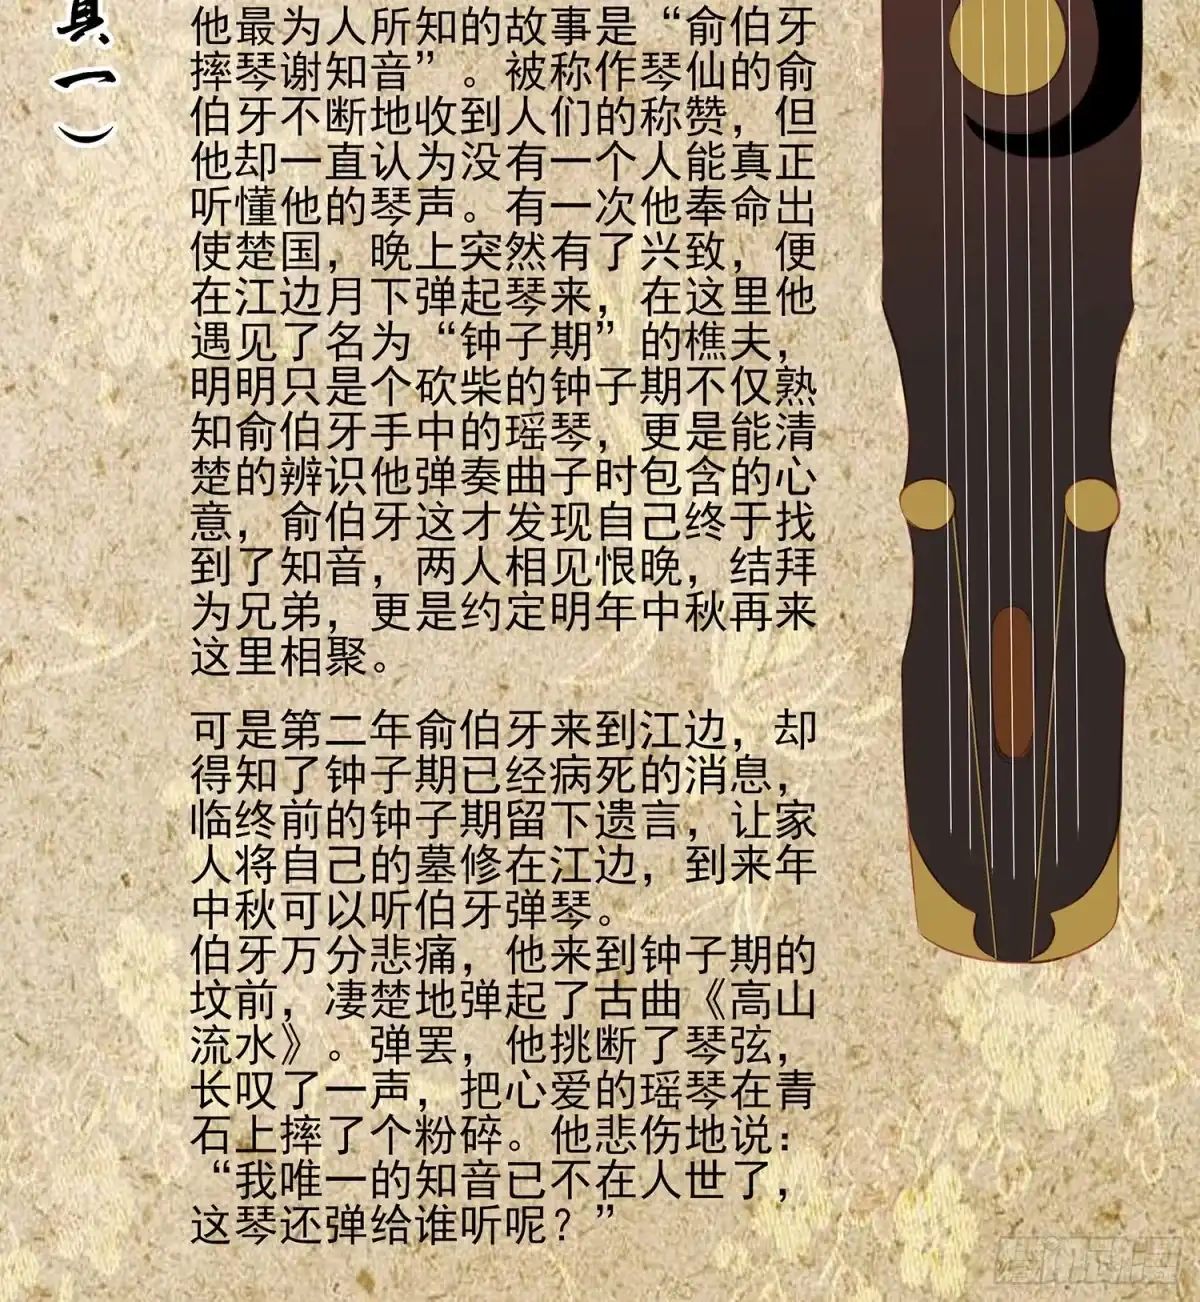 真一）
他最为人所知的故事是“俞伯牙
摔琴谢知音”。被称作琴仙的俞
伯牙不断地收到人们的称赞，但
他却一直认为没有一个人能真正
听懂他的琴声。有一次他奉命出
使楚国，晚上突然有了兴致，便
在江边月下弹起琴来，在这里他
遇见了名为“钟子期”的樵夫，
明明只是个砍柴的钟子期不仅熟
知俞伯牙手中的瑶琴，更是能清
楚的辨识他弹奏曲子时包含的心
意，俞伯牙这才发现自己终于找
到了知音，两人相见恨晚，结拜
为兄弟，更是约定明年中秋再来
这里相聚。
可是第二年俞伯牙来到江边，却
得知了钟子期已经病死的消息，
临终前的钟子期留下遗言，让家
人将自己的墓修在江边，到来年
中秋可以听伯牙弹琴。
伯牙万分悲痛，他来到钟子期的
坟前，凄楚地弹起了古曲《高山
流水》。弹罢，他挑断了琴弦，
长叹了一声，把心爱的瑶琴在青
石上摔了个粉碎。他悲伤地说：
“我唯一的知音已不在人世了，
这琴还弹给谁听呢？”